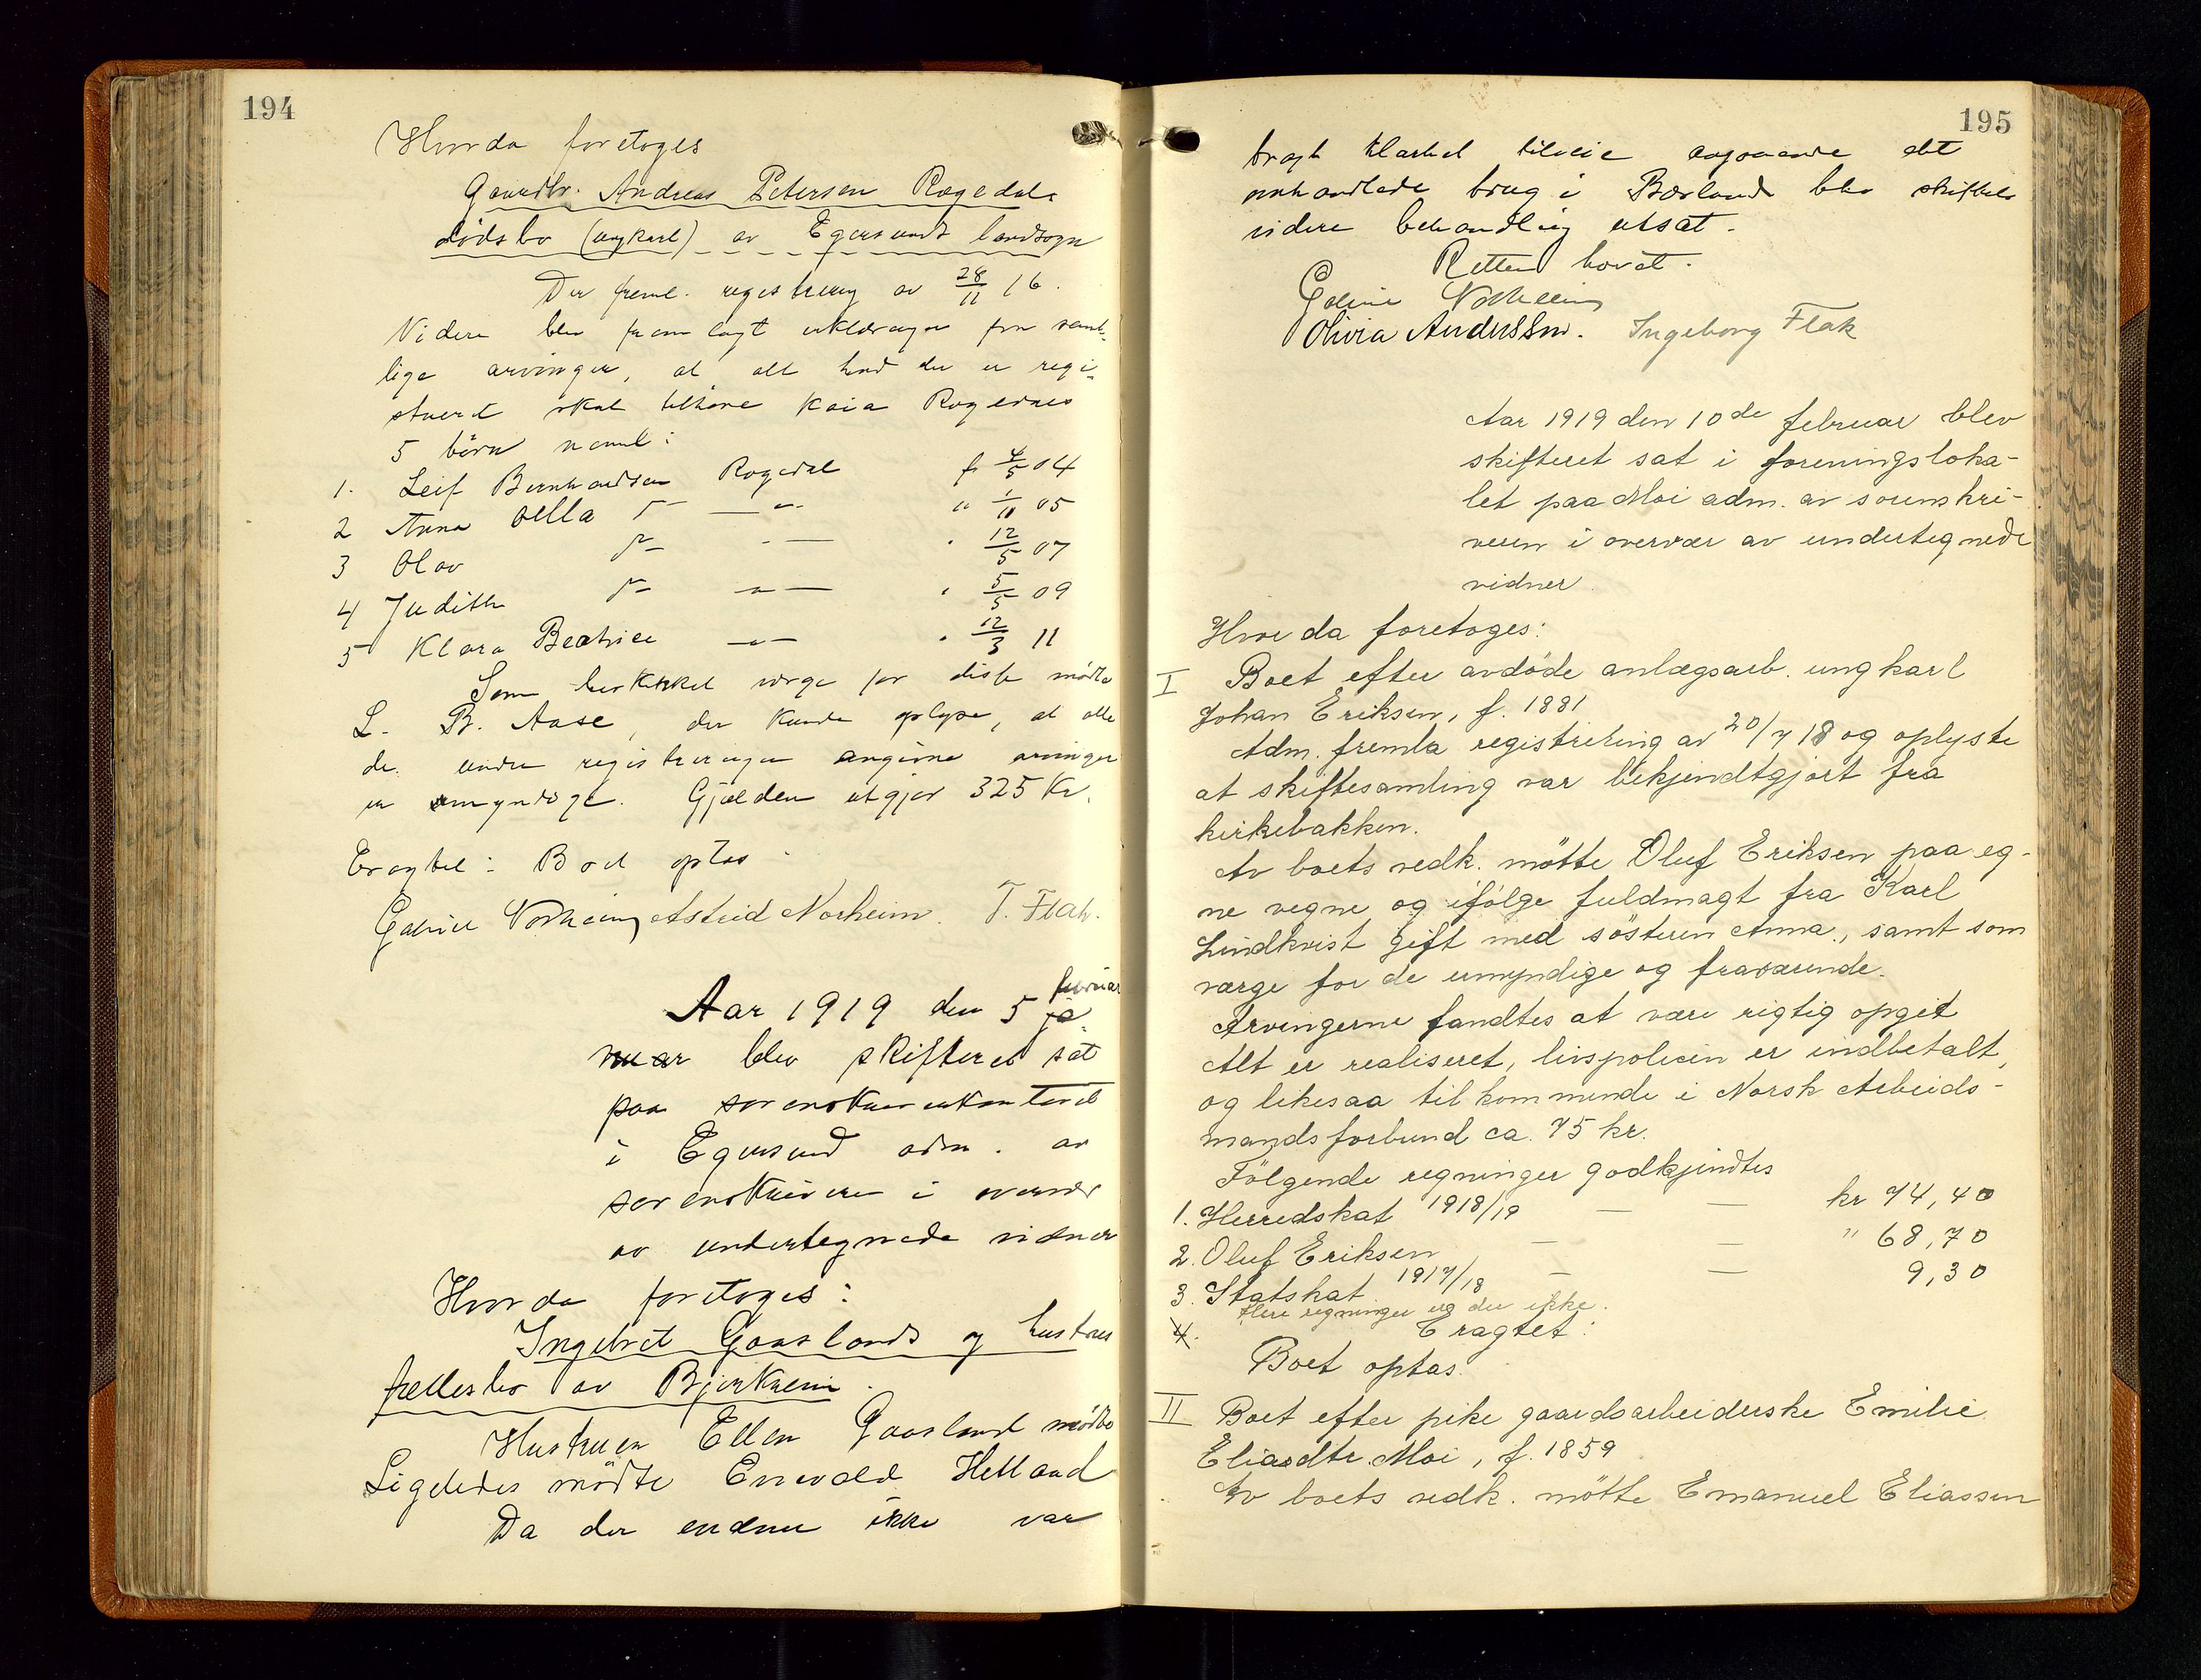 194
Hvorda foretoges
Gaardbr. Andreas Petersen Rogedals
dødsbo (ungkarl) av Egersunds landsogn
Der freml. registrering av 28/11 16.
Videre blev fremlagt erklæringer fra samt-
lige arvinger, at alt hvad der er regi-
streret skal tilhøre Kaia Rogedals
5 børn neml:
1. Leif Bernhardsen Rogedal f 4/5 04
2 Anna Olla " 1/10 05
3 Olav " 12/5 07
4 Judith " 5/5 09
5 Klara Beatrice " 12/3 11
Som beskikket verge for disse mødte
L. B. Aase, der kunde oplyse, at alle
de under registreringen angivne arvinger
er umyndige. Gjælden utgjør 325 Kr.
Eragtet: Boet optas.
Gabriel Norheim Astrid Norheim. T. Flak.
Aar 1919 den 5 februar ja-
nuar blev skifteret sat
paa sorenskriverkontoret
i Egersund adm. av
sorenskriveren i overvær
av undertegnede vidner
Hvorda foretoges:
Ingebret Gaaslands og hustrus
fællesbo av Bjerkreim.
Hustruen Ellen Gaasland mødte
Ligeledes mødte Enevald Helland
Da der endnu ikke var
195
bragt klarhet tilveie angaaende det
omhandlede brug i Børland blev skiftets
videre behandling utsat.
Retten hævet.
Norheim
Olivia Anderssen. Ingeborg Flak
Aar 1919 den 10de februar blev
skifteret sat i foreningsloka-
let paa Moi adm. av sorenskri-
veren i overvær av undertegnede
vidner.
Hvor da foretoges:
I Boet efter avdøde anlægsarb. ungkarl
Johan Eriksen, f. 1881
Adm. fremla registrering av 20/7 18 og oplyste
at skiftesamling var bekjendtgjort fra
kirkebakken.
Av boets vedk. møtte Oluf Eriksen paa eg-
ne vegne og ifølge fuldmagt fra Karl
Lindkvist gift med søsteren Anna, samt som
værge for de umyndige og fraværende.
Arvingerne fandtes at være rigtig opgit
Alt er realiseret, livspolicen er indbetalt,
og likesaa tilkommende i Norsk Arbeids-
mandsforbund ca. 75 kr.
Følgende regninger godkjendtes
1. Herredskat 1918/19 — — kr 74,40
2. Oluf Eriksen — — " 68,70
3. Statskat 1917/18 — — 9,30
Flere regninger er der ikke.
4. Eragtet:
Boet optas.
II Boet efter pike gaardsarbeiderske Emilie
Eliasdtr. Moi, f. 1859
Av boets vedk. møtte Emanuel Eliassen